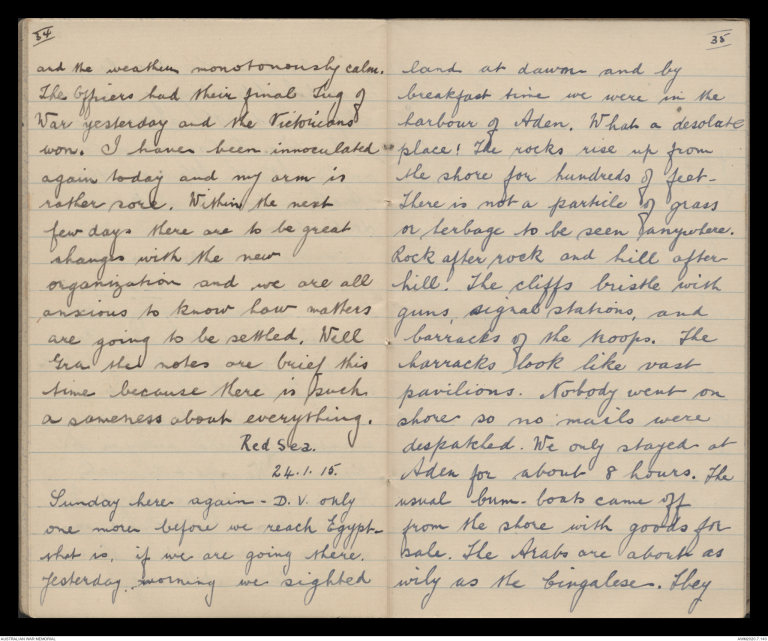 34
and the weather monotonously calm.
The Officers had their final Tug of
War yesterday and the Victorians
won. I have been innoculated
again today and my arm is
rather sore. Within the next
few days there are to be great
changes with the new
organization and we are all
anxious to know how matters
are going to be settled. Well
Gra the notes are brief this
time because there is such
a sameness about everything.
Red Sea.
24.1.15.
Sunday here again - D.V. only
one more before we reach Egypt-
that is, if we are going there.
Yesterday morning we sighted
35
land at dawn and by
breakfast time we were in the
harbour of Aden. What a desolate
place! The rocks rise up from
the shore for hundreds of feet-
There is not a particle of grass
or herbage to be seen anywhere.
Rock after rock and hill after
hill. The cliffs bristle with
guns, signal stations, and
barracks of the troops. The
barracks look like vast
pavilions. Nobody went on
shore so no mails were
despatched. We only stayed at
Aden for about 8 hours. The
usual bum-boats came off
from the shore with goods for
sale. The Arabs are about as
wily as the Cingalese. They
AUSTRALIAN WAR MEMORIAL